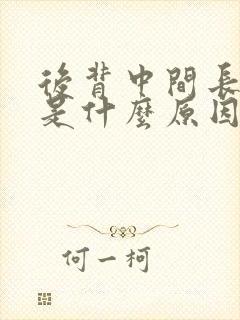 後背中間長
是什麼原因
何一柯